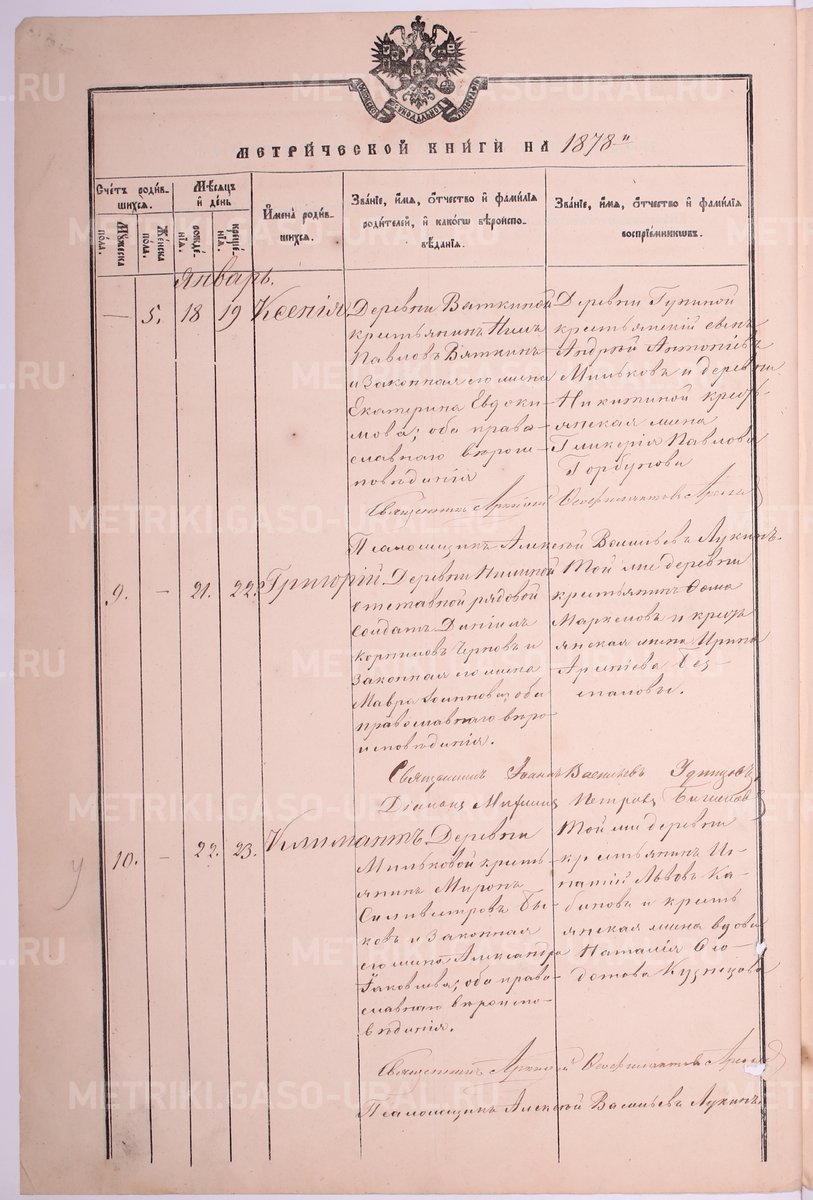 МЕТРИ́ЧЕСКОЙ КНИ́ГИ НА 1878 "
Счетъ родив-
шихся.
Мужеска пола.
Же́нска пола.
Мѣсяцъ
и день
рожде-
нія.
креще-
нія.
Имена родив-
шихся.
Званіе, имя, отчество и фамилія
родителей, и какогѡ вѣроиспо-
вѣданія.
Званіе, имя, отчество и фамилія
воспріемниковъ.
Январь.
— 5. 18 19 Ксенія
Деревни Вяткиной
крестьянинъ Нилъ
Павловъ Вяткинъ
и законная его жена
Екатерина Евдоки-
мова; оба право-
славнаго вѣроис-
повѣданія
Деревни
крестьянскій сынъ
Андрей Антоніевъ
Мильковъ и деревни
Никитиной кресть-
янская жена
Гликерія Павлова
Горбунова
Священникъ
Псаломщикъ Алексѣй Васильевъ Лукинъ.
9. — 21. 22. Григорій.
Деревни
отставной рядовой
солдатъ Даніилъ
Корниловъ Черновъ и
законная его жена
Мавра оба
православнаго вѣро-
исповѣданія.
Той же деревни
крестьянинъ Ѳома
Маркеловъ и кресть-
янская жена Ирина
Священникъ Іоаннъ Васильевъ Удинцовъ
Діаконъ Петровъ
10. — 22. 23. Климантъ.
Деревни
Мильковой кресть-
янинъ Миронъ
Силивестровъ Бы-
ковъ и законная
его жена Александра
Яковлева; оба право-
славнаго вѣроиспо-
вѣданія.
Той же деревни
крестьянинъ Иг-
натій Львовъ Ка-
биновъ и кресть-
янская жена вдова
Наталія Ѳео-
дотова Кузнецова
Священникъ
Псаломщикъ Алексѣй Васильевъ Лукинъ.
METRIKI.GASO-URAL.RU